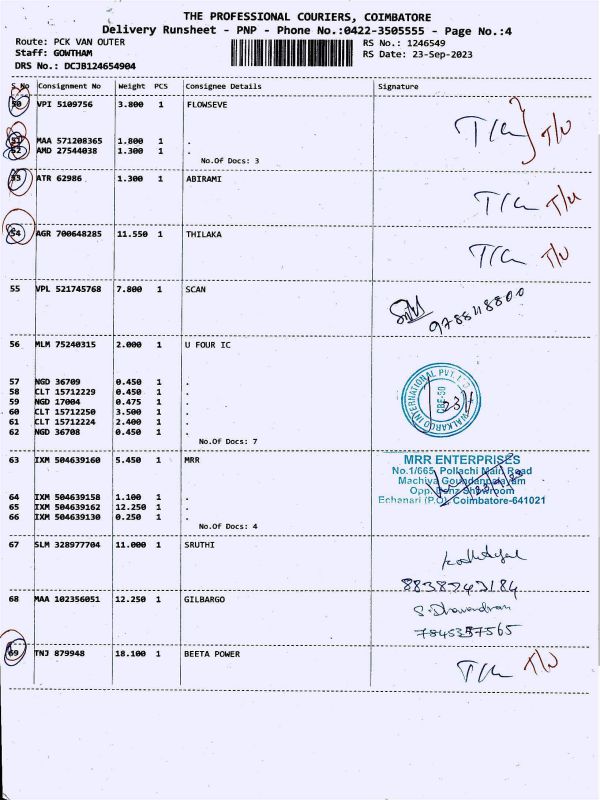 THE PROFESSIONAL COURIERS, COIMBATORE
Delivery Runsheet - PNP - Phone No.:0422-3505555 - Page No.:4
Route: PCK VAN OUTER RS No.: 1246549
Staff: GOWTHAM RS Date: 23-Sep-2023
DRS No.: DCJB124654904
S.No Consignment No Weight PCS Consignee Details Signature
50 VPI 5109756 3.800 1 FLOWSEVE
51 MAA 571208365 1.800 1 .
52 AMD 27544038 1.300 1 .
No.Of Docs: 3
53 ATR 62986 1.300 1 ABIRAMI
54 AGR 700648285 11.550 1 THILAKA
55 VPL 521745768 7.800 1 SCAN
56 MLM 75240315 2.000 1 U FOUR IC
57 NGD 36709 0.450 1 .
58 CLT 15712229 0.450 1 .
59 NGD 17004 0.475 1 .
60 CLT 15712250 3.500 1 .
61 CLT 15712224 2.400 1 .
62 NGD 36708 0.450 1 .
No.Of Docs: 7
63 IXM 504639160 5.450 1 MRR
MRR ENTERPRISES
No.1/665, Pollachi Main Road
Machiya Goundanpalayam
Opp. Benz Showroom
Echanari (P.O), Coimbatore-641021
64 IXM 504639158 1.100 1 .
65 IXM 504639162 12.250 1 .
66 IXM 504639130 0.250 1 .
No.Of Docs: 4
67 SLM 328977704 11.000 1 SRUTHI
8838743184
68 MAA 102356051 12.250 1 GILBARGO
7845357565
69 TNJ 879948 18.100 1 BEETA POWER